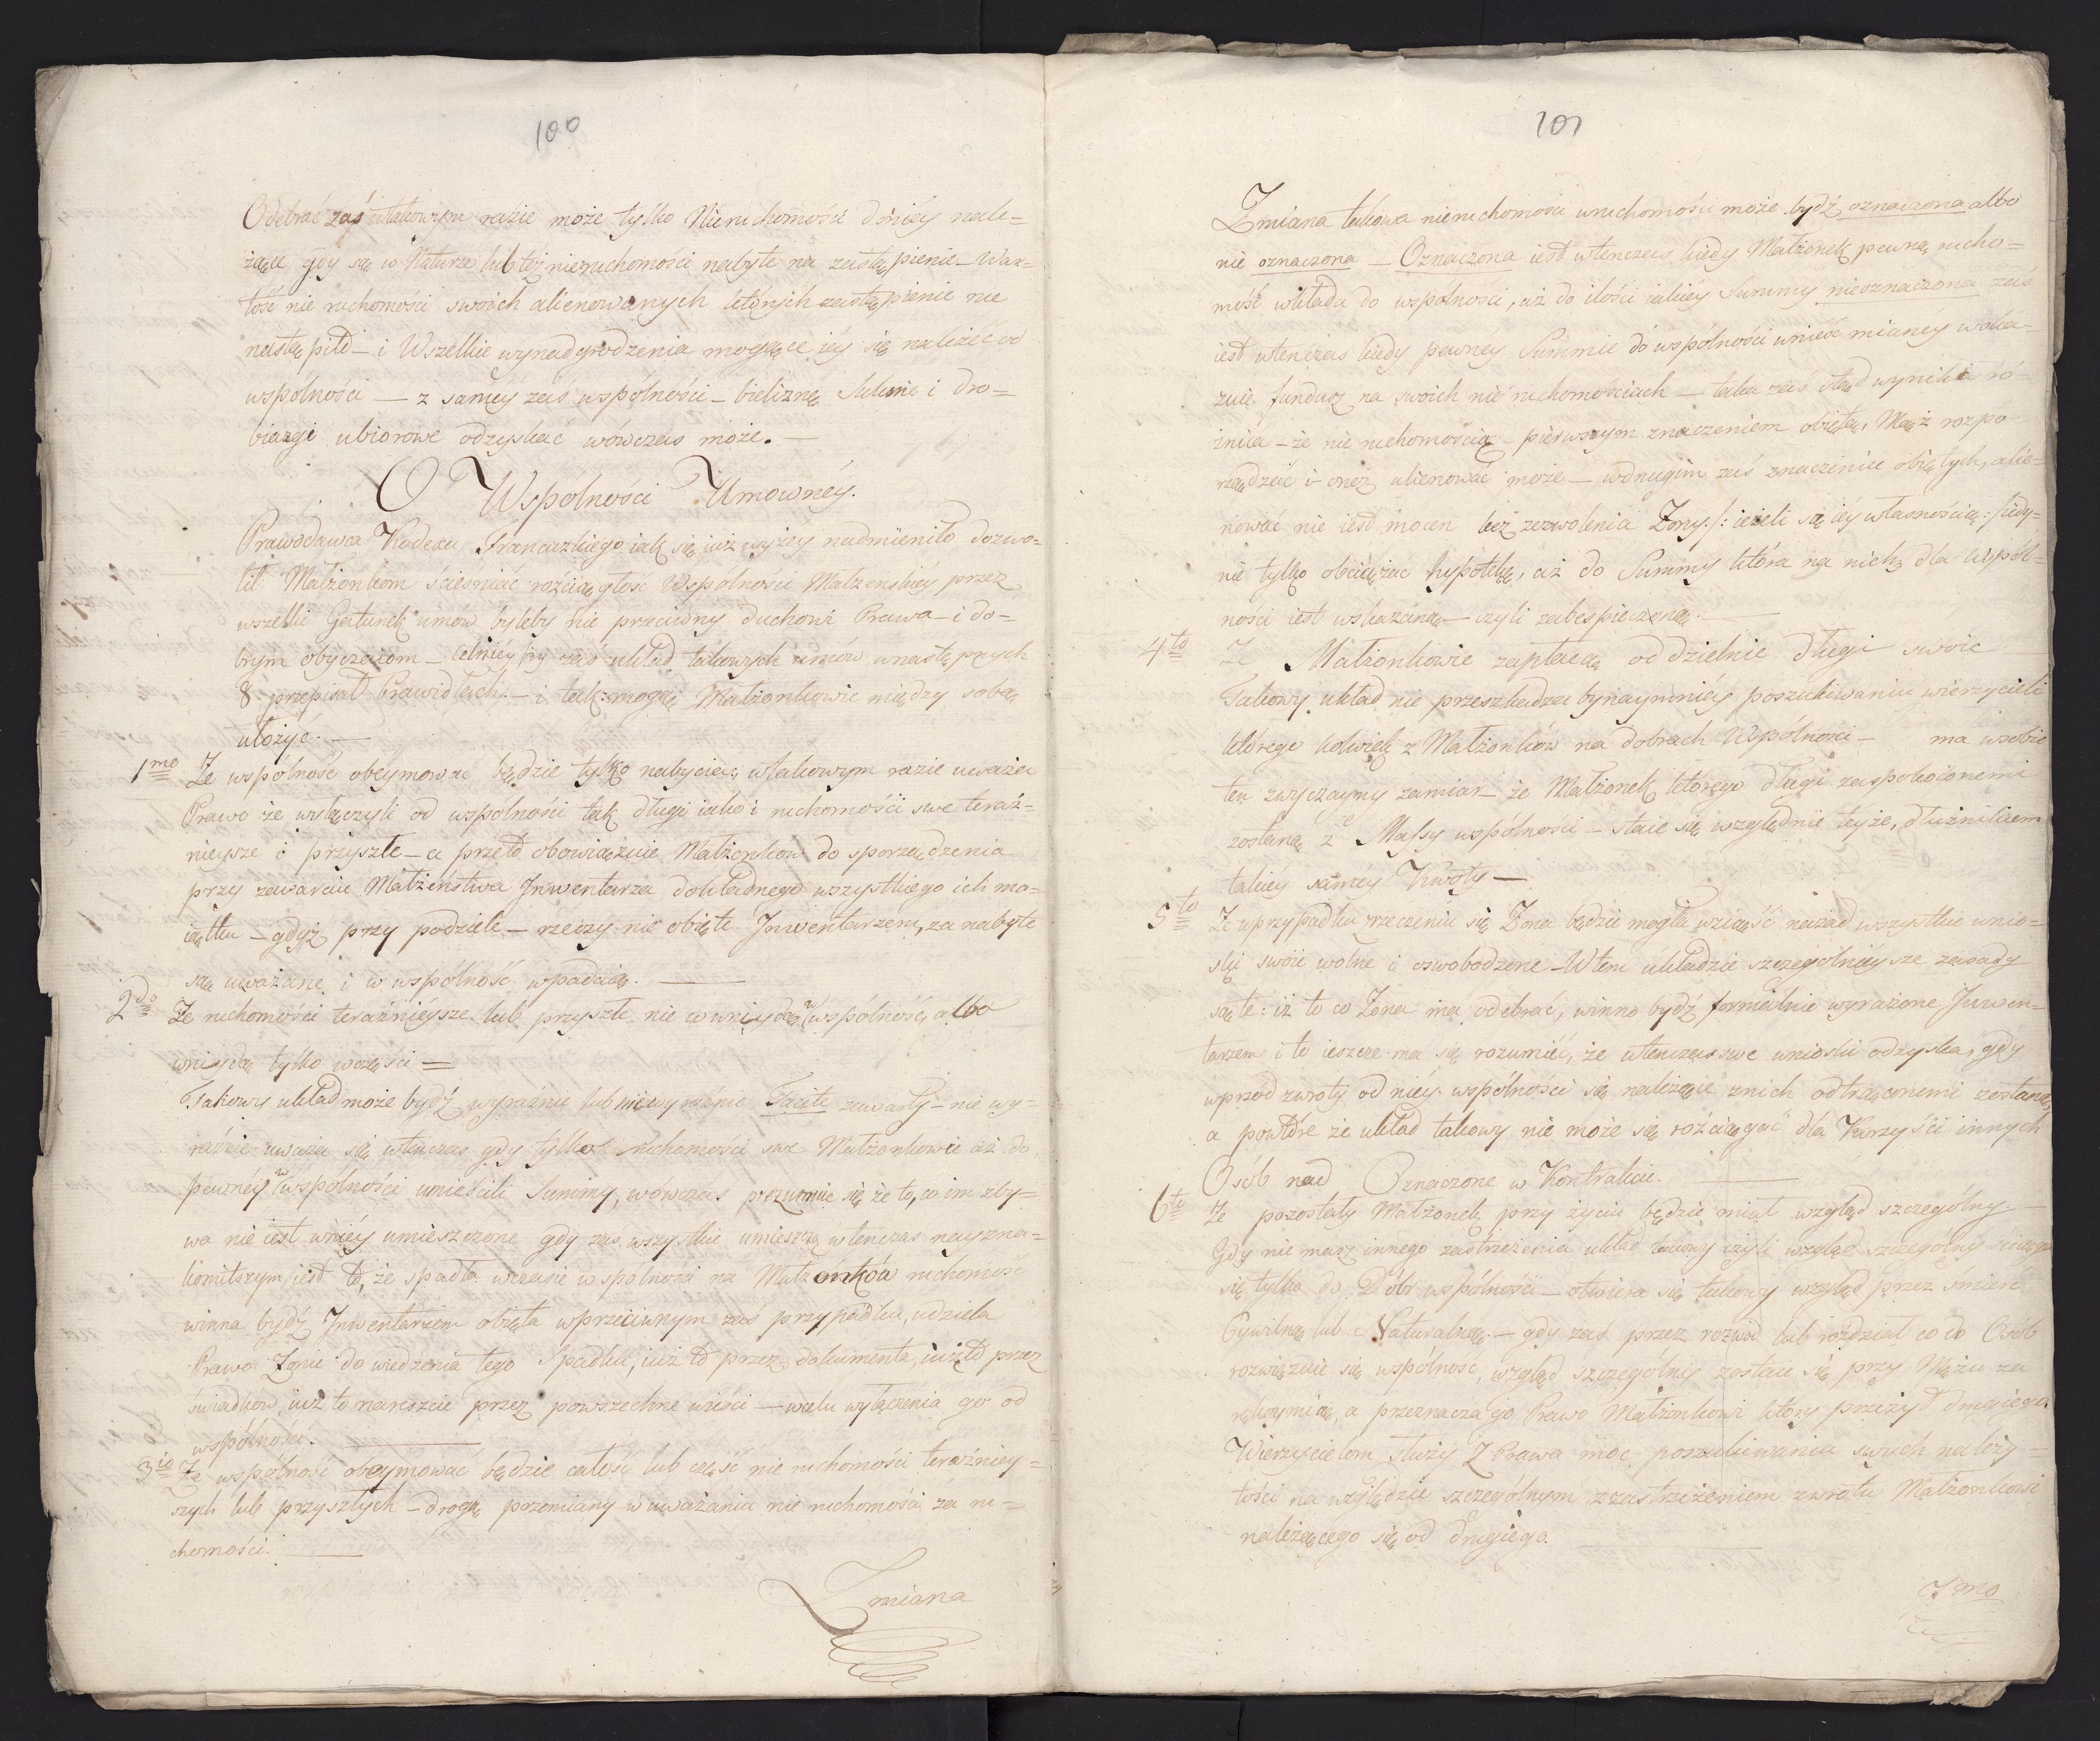 100
Odebrać zaś w takowym razie może tylko Nieruchomości do niéy nale=
żące gdy są w Naturze lub téż nieruchomości nabyte na zastąpienie – War=
tość nie ruchomości swoich alienowanych których zastąpienie nie
nastąpiło – i Wszelkie wynadgrodzenia mogące iéy się należeć od
wspólności — z saméy zaś wspólności – bieliznę Suknie i dro=
biazgi ubiorowe odzyskać wówczas może. —
O Wspólności Umownéy.
Prawodawca Kodexu Francuzkiego iak się iuż wyżéy nadmieniło dozwo=
lił Małżonkom ścieśniać rościągłość Wspólności Małżenskiéy przez
wszelki Gatunek umów byleby nie przeciwny duchowi Prawa – i do=
brym obyczaiom – celniéyszy zaś układ takowych umów w następnych
8 przepisał Prawidłach. – i tak: mogą Małżonkowie między sobą
ułożyć. —
1mo Że wspólność obeymować będzie tylko nabycia; w takowym razie uważa
Prawo że wyłączyli od wspólności tak długi iako i ruchomości swe teraź=
nieysze i przyszłe – a przeto obowiązuie Małżonków do sporządzenia
przy zawarciu Małżeństwa Inwentarza dokładnego wszystkiego ich ma=
iątku – gdyż przy podziale – rzeczy nie obięte Inwentarzem, za nabyte
są uważane i w wspólność wpadaią. —
2do Że ruchomości teraźniéysze lub przyszłe nie wnijdą w wspólność, albo
wnijdą tylko w części =
Takowy układ może bydź wyraźnie lub niewyraźnie Tacite zawarty – nie wy=
raźnie uważa się wtenczas gdy tylko ruchomości swe Małżonkowie aż do
pewnéy w wspólności umieścili Summy, wówczas rozumie się że to, co im zby=
wa nie iest w niéy umieszczone gdy zaś wszystkie umieszczą wtenczas nayzna=
komitszym iest to, że spadła w czasie wspólności na Małżonków ruchomość
winna bydź Inwentarzem obięta w przeciwnym zaś przypadku, udziela
Prawo Żonie do wiedzenia tego Spadku, iuż to przez dokumenta, iuż to przez
świadków, iuż to nareszcie przez powszechne wieści — w celu wyłączenia go od
wspólności. —
3io Że wspólność obeymować będzie całość lub część nie ruchomości teraźniey=
szych lub przyszłych – drogą przemiany w uważaniu nie ruchomości za ru=
chomości. —
Zmiana
101
Zmiana takowa nieruchomości w ruchomości może bydź oznaczona albo
nie oznaczona – Oznaczona iest wtenczas kiedy Małżonek pewną rucho=
mość wkłada do wspólności, aż do ilości iakiéy Summy nieoznaczona zaś
iest wtenczas kiedy pewnéy Summie do wspólności wnieść mianéy wska=
zuie fundusz na swoich nie ruchomościach — taka zaś stąd wynika ró=
żnica – że nie ruchomością – pierwszym znaczeniem obiętą, Mąż rozpo=
rządzić i onéż alienować może — w drugim zaś znaczeniu obiętych, alie=
nować nie iest mocen bez zezwolenia Żony /: ieżeli są iéy własnością :/ iedy=
nie tylko obciążać hypotekę, aż do Summy która na nich dla Wspól=
ności iest wskazaną — czyli zabespieczoną. —
4to Że Małżonkowie zapłacą oddzielnie długi swoie
Takowy układ nie przeszkadza bynaymniéy poszukiwaniu wierzycieli
którego kolwiek z Małżonków na dobrach Wspólności – ma w sobie
ten zwyczayny zamiar – że Małżonek którego długi zaspokoionemi
zostaną z Massy wspólności – staie się względnie teyże, dłużnikiem
takiéy saméy Kwoty —
5to Że w przypadku zrzeczenia się Żona będzie mogła wziąść nazad wszystkie wnio=
ski swoie wolne i oswobodzone – W tem układzie szczególniéysze zasady
są te: iż to co Żona ma odebrać, winno bydź formalnie wyrażone Inwen=
tarzem i to ieszcze ma się rozumieć, że wtenczas swe wnioski odzyska, gdy
wprzód zwroty od niéy wspólności się należące z nich odtrąconemi zostaną,
a powtóre że układ takowy nie może się rościągać dla Korzyści innych
Osób nad Oznaczone w Kontrakcie. —
6to Że pozostały Małżonek przy życiu będzie miał wzgląd szczególny. —
Gdy nie masz innego zastrzeżenia układ takowy czyli wzgląd szczególny ściąga
się tylko do Dóbr wspólności – otwiera się takowy wzgląd przez śmierć
Cywilną lub Naturalną. – gdy zaś przez rozwód lub rozdział co do Osób
rozwiązuie się wspólność, wzgląd szczególny zostaie się przy Mężu za
rękoymią, a przeznacza go Prawo Małżonkowi który przeżył drugiego
Wierzycielom służy z Prawa moc poszukiwania swych należy=
tości na względzie szczególnym z zastrzeżeniem zwrotu Małżonkowi
należącego się od drugiego. —
7mo